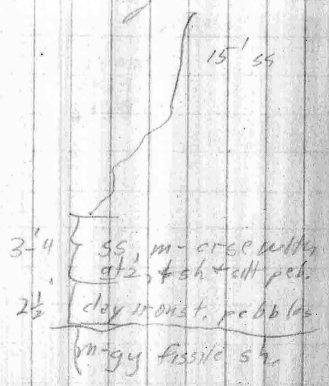 15' ss
3-4' ss, m-crse with
qtz, + sh + alt peb.
2½' clay ironst. pebbles
m-gy fissile sh.